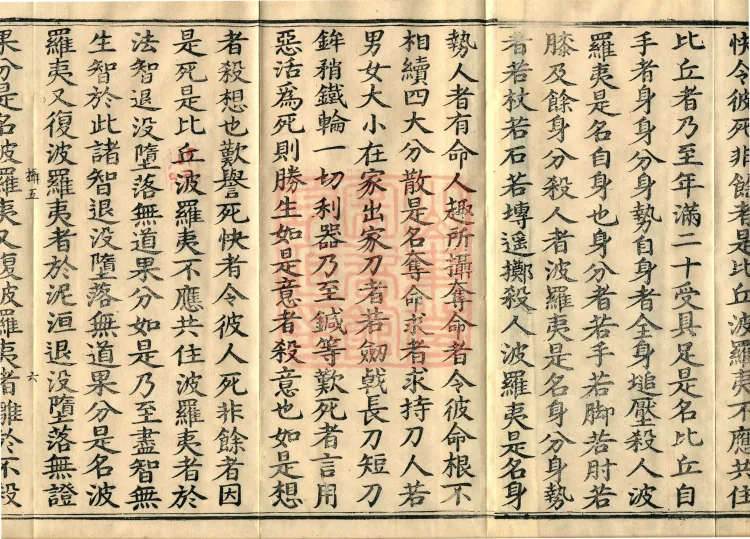 快令彼死非餘者是比丘波羅夷不應共住
比丘者乃至年滿二十受具足是名比丘自
手者身身分身勢自身者全身塠壓殺人波
羅夷是名自身也身分者若手若脚若肘若
膝及餘身分殺人者波羅夷是名身分身勢
者若杖若石若塼遥擲殺人波羅夷是名身
勢人者有命人趣所攝奪命者令彼命根不
相續四大分散是名奪命求者求持刀人若
男女大小在家出家刀者若劒戟長刀短刀
鉾矟鐵輪一切利器乃至鍼等歎死者言用
惡活爲死則勝生如是意者殺意也如是想
者殺想也歎譽死快者令彼人死非餘者因
是死是比丘波羅夷不應共住波羅夷者於
法智退没墮落無道果分如是乃至盡智無
生智於此諸智退没墮落無道果分是名波
羅夷又復波羅夷者於泥洹退没墮落無證
五
六
果分是名波羅夷又復波羅夷者離於不殺